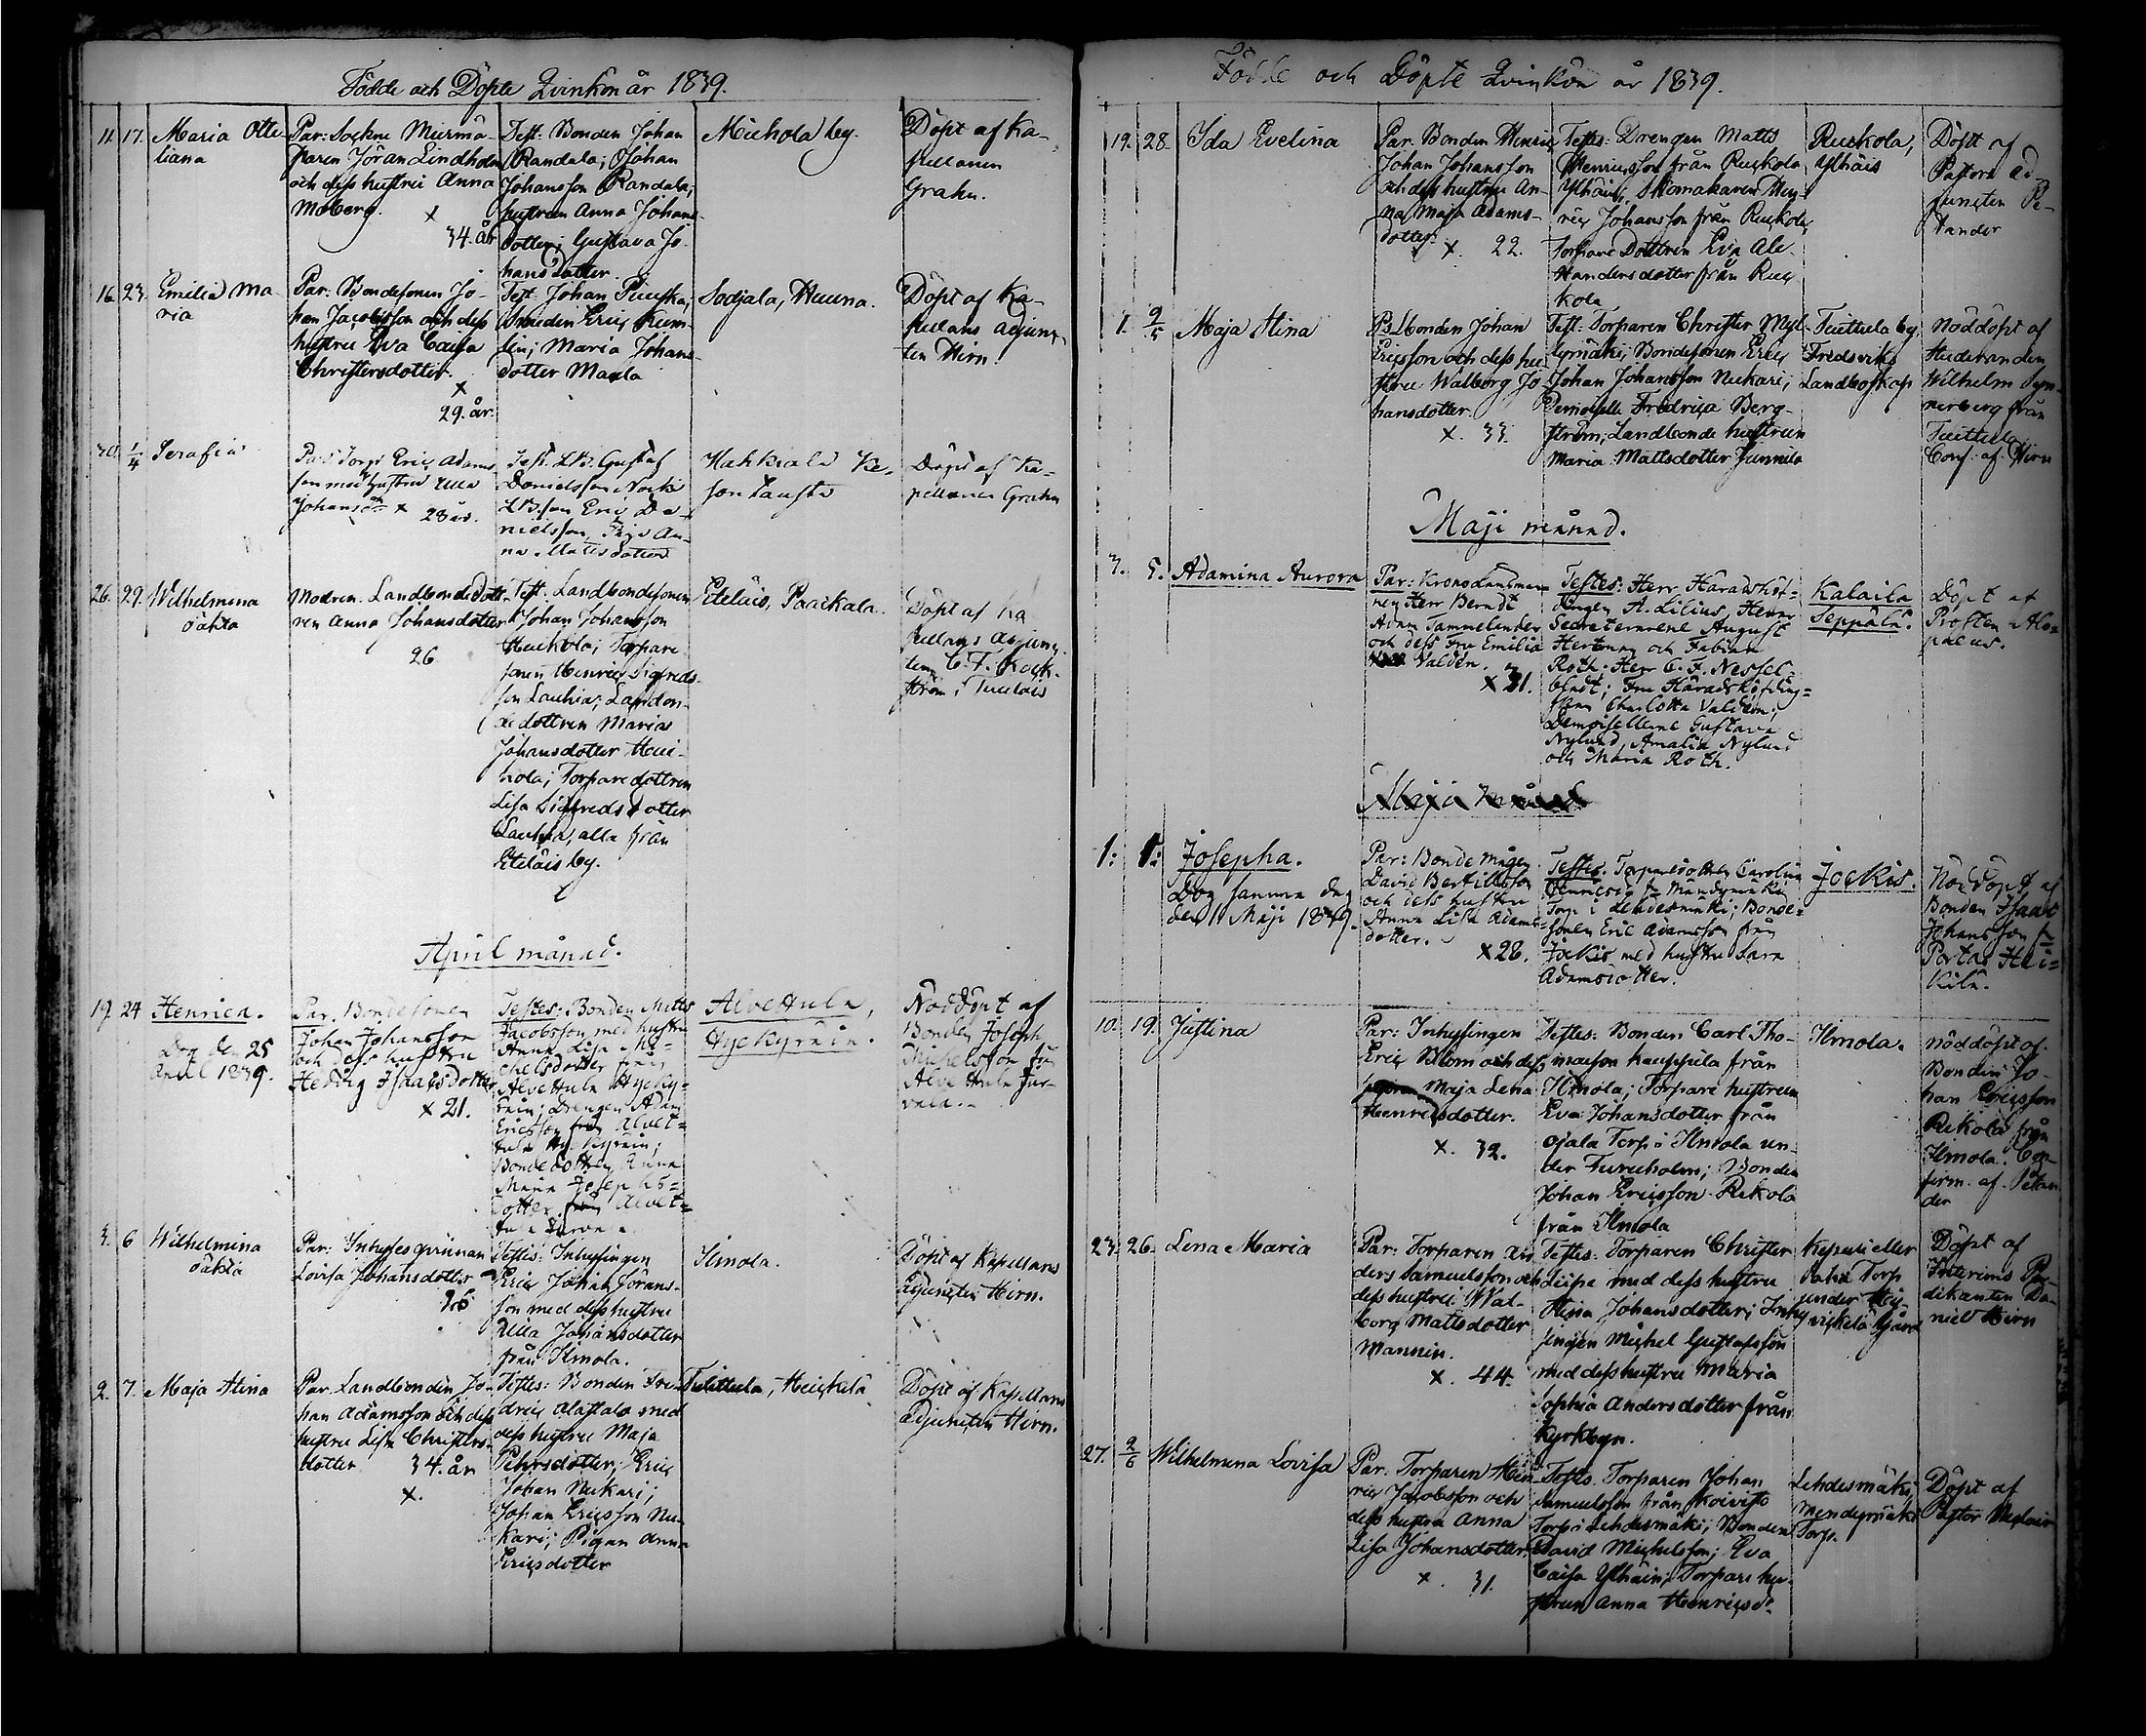 Födde och Döpte Qvinkön år 1839.
11. 17. Maria Otte-
liana
Par: Sockne Murmä-
staren Jöran Lindholm
och dess hustru Anna
Moberg. x
34. år
Test: Bonden Johan
Randala; Johan
Johansson Randala;
hustrun Anna Johans-
dotter; Gustava Jo-
hansdotter.
Michola by.
Döpt af Ka-
pellanen
Grahn.
16. 23. Emilia Ma-
ria
Par: Bondesonen Jo-
han Jacobsson och dess
hustru Eva Caisa
Christersdotter.
x
29. år.
Test: Johan
Smeden Eric
Maria Johans-
dotter Maula
Sodjala,
Döpt af Ka-
pellans Adjunc-
ten Hirn.
30. 1/4 Serafia
Par: Torp: Eric Adams-
son med hustru Ulla
x 28 år.
Test. Gustaf
Danielsson
Eric Da-
nielsson, Piga An-
na Matsdotter
Döpt af Ka-
pellanen Grahn
26. 29. Wilhelmina
oäkta
Modren. Landbondedott-
ren Anna Johansdotter
26
Test. Landbondesonen
Johan Johansson
Torpare
sonen Henric Sigfreds-
son Lauhia; Landbon-
dedottren Maria
Johansdotter
Torparedottren
Lisa Sigfredsdotter
Lauhia, alla från
Eteläis by.
Eteläis, Paaikala.
Döpt af Ka
pellans Adjunc-
ten C. F. Kock-
ström i Tuulois
April månad.
19 24 Henrica.
Dog den 25
April 1839.
Par. Bondesonen
Johan Johansson
och dess hustru
Hedvig Isaacsdotter
x 21.
Testes: Bonden Matts
Jacobsson med hustru
Anna Lisa Mi-
chelsdotter från
Alvettula Hycky-
rein; Drengen Adam
Ericsson från Alvet-
tula Hyckyrein;
Bondedottren Anna
Maria Josephs-
dotter från Alvet-
tula
Alvettula,
Hyckyrein.
Nöddöpt af
Bonden Joseph
Michelsson från
Alvettula
3. 6 Wilhelmina
oäkta
Par: Inhysesqvinnan
Lovisa Johansdotter
Testis: Inhysingen
Eric Johan Jörans-
son med dess hustru
Ulla Johansdotter
från Ilmola.
Ilmola.
Döpt af Kapellans
Adjuncten Hirn.
2. 7. Maja Stina
Par. Landbonden Jo-
han Adamsson och dess
hustru Lisa Christers-
dotter 34. år
x.
Testes: Bonden Fre-
dric Alastalo med
dess hustru Maja
Pehrsdotter; Eric
Johan Nukari;
Johan Ericsson Nu-
kari; Pigan Anna
Ericsdotter
Tuittula, Heickilä
Döpt af Kapellans
Adjuncten Hirn.
Födde och Döpte Qvinkön år 1839.
19. 28. Ida Evelina
Par. Bonden Henric
Johan Johansson
och dess hustru An-
na Maja Adams-
dotter.
x. 22.
Testes: Drengen Matts
Henricsson från Ruckola
Ylhäis; Skomakaren Hen-
ric Johansson från Ruckola
Torpare Dottren Eva Ale-
xandersdotter från Ruc-
kola
Ruckola,
Ylhäis
Döpt af
Pastors Ad-
juncten Pe-
tander
1. 9/5 Maja Stina
Landbonden Johan
Ericsson och dess hu-
stru Walborg Jo-
hansdotter.
x. 33.
Test: Torparen Christer Myl-
lymäki; Bondesonen Eric
Johan Johansson Nukari;
Demoiselle Fredrica Berg-
ström; Landbonde hustrun
Maria Mattsdotter Junnila
Tuittula by
Fredsviks
Landboskap
Nöddöpt af
Studeranden
Wilhelm
från
Tuittula
Conf. af Hirn
Maji månad.
3. 5. Adamina Aurora
Par: Kronolänsman-
nen Herr Berndt
Adam Tammelander
och dess Fru Emilia
Valdén.
x 31.
Testes: Herr Häradshöf-
dingen A. Lilius, Herrar
Secreterarene August
Hertman och Fabian
Roth. Herr C. F. Nessel-
bladt; Fru Häradshöfding-
skan Charlotta Valden;
Demoisellerne Gustava
Nylund, Amalia Nylund
och Maria Roth.
Kalaila
Seppälä.
Döpt af
Prosten Alo-
paeus.
Maji månad
1: 1: Josepha.
Dog samma dag
den 1 Maji 1839.
Par: Bondemågen
David Bertillsson
och dess hustru
Anna Lisa Adams-
dotter.
x 28.
Testes. Torparedottren Carolina
Torp i Lehdesmäki; Bonde-
sonen Eric Adamsson från
Jockis med hustru Sara
Adamsdotter.
Jockis.
Nöddöpt af
Bonden Isaac
Johansson fr
Portas Hei-
kilä.
10. 19. Justina
Par: Inhysingen
Eric Blom och dess
Maja Lena
Henricsdotter.
x. 32.
Testes: Bonden Carl Tho-
masson Kauppila från
Ilmola; Torpare hustrun
Eva Johansdotter från
Ojala Torp i Ilmola un-
der Tureholm; Bonden
Johan Ericsson Rekola
från Ilmola
Ilmola.
Nöddöpt af
Bonden Jo-
han Ericsson
Rekola från
Ilmola. Con-
firm. af Petan-
der
23. 26. Lena Maria
Par: Torparen An-
ders Samuelsson och
dess hustru Wal-
borg Mattsdotter
Mannin.
x. 44.
Testes: Torparen Christer
med dess hustru
Stina Johansdotter; Inhy-
singen Michel Gustafsson
med dess hustru Maria
Sophia Andersdotter från
Kyrkbyn.
eller
Torp
under
Döpt af
Interims Pre-
dikanten Da-
niel Hirn
27. 2/6 Wilhelmina Lovisa
Par. Torparen Hen-
ric Jacobsson och
dess hustru Anna
Lisa Johansdotter.
x. 31.
Testes. Torparen Johan
Samuelsson från Koivisto
Torp i Lehdesmäki; Bonden
David Michelsson; Eva
Caisa Ylhäin; Torpare hu-
strun Anna Henricsd:
Lehdesmäki
Mendymäki
Torp.
Döpt af
Pastor